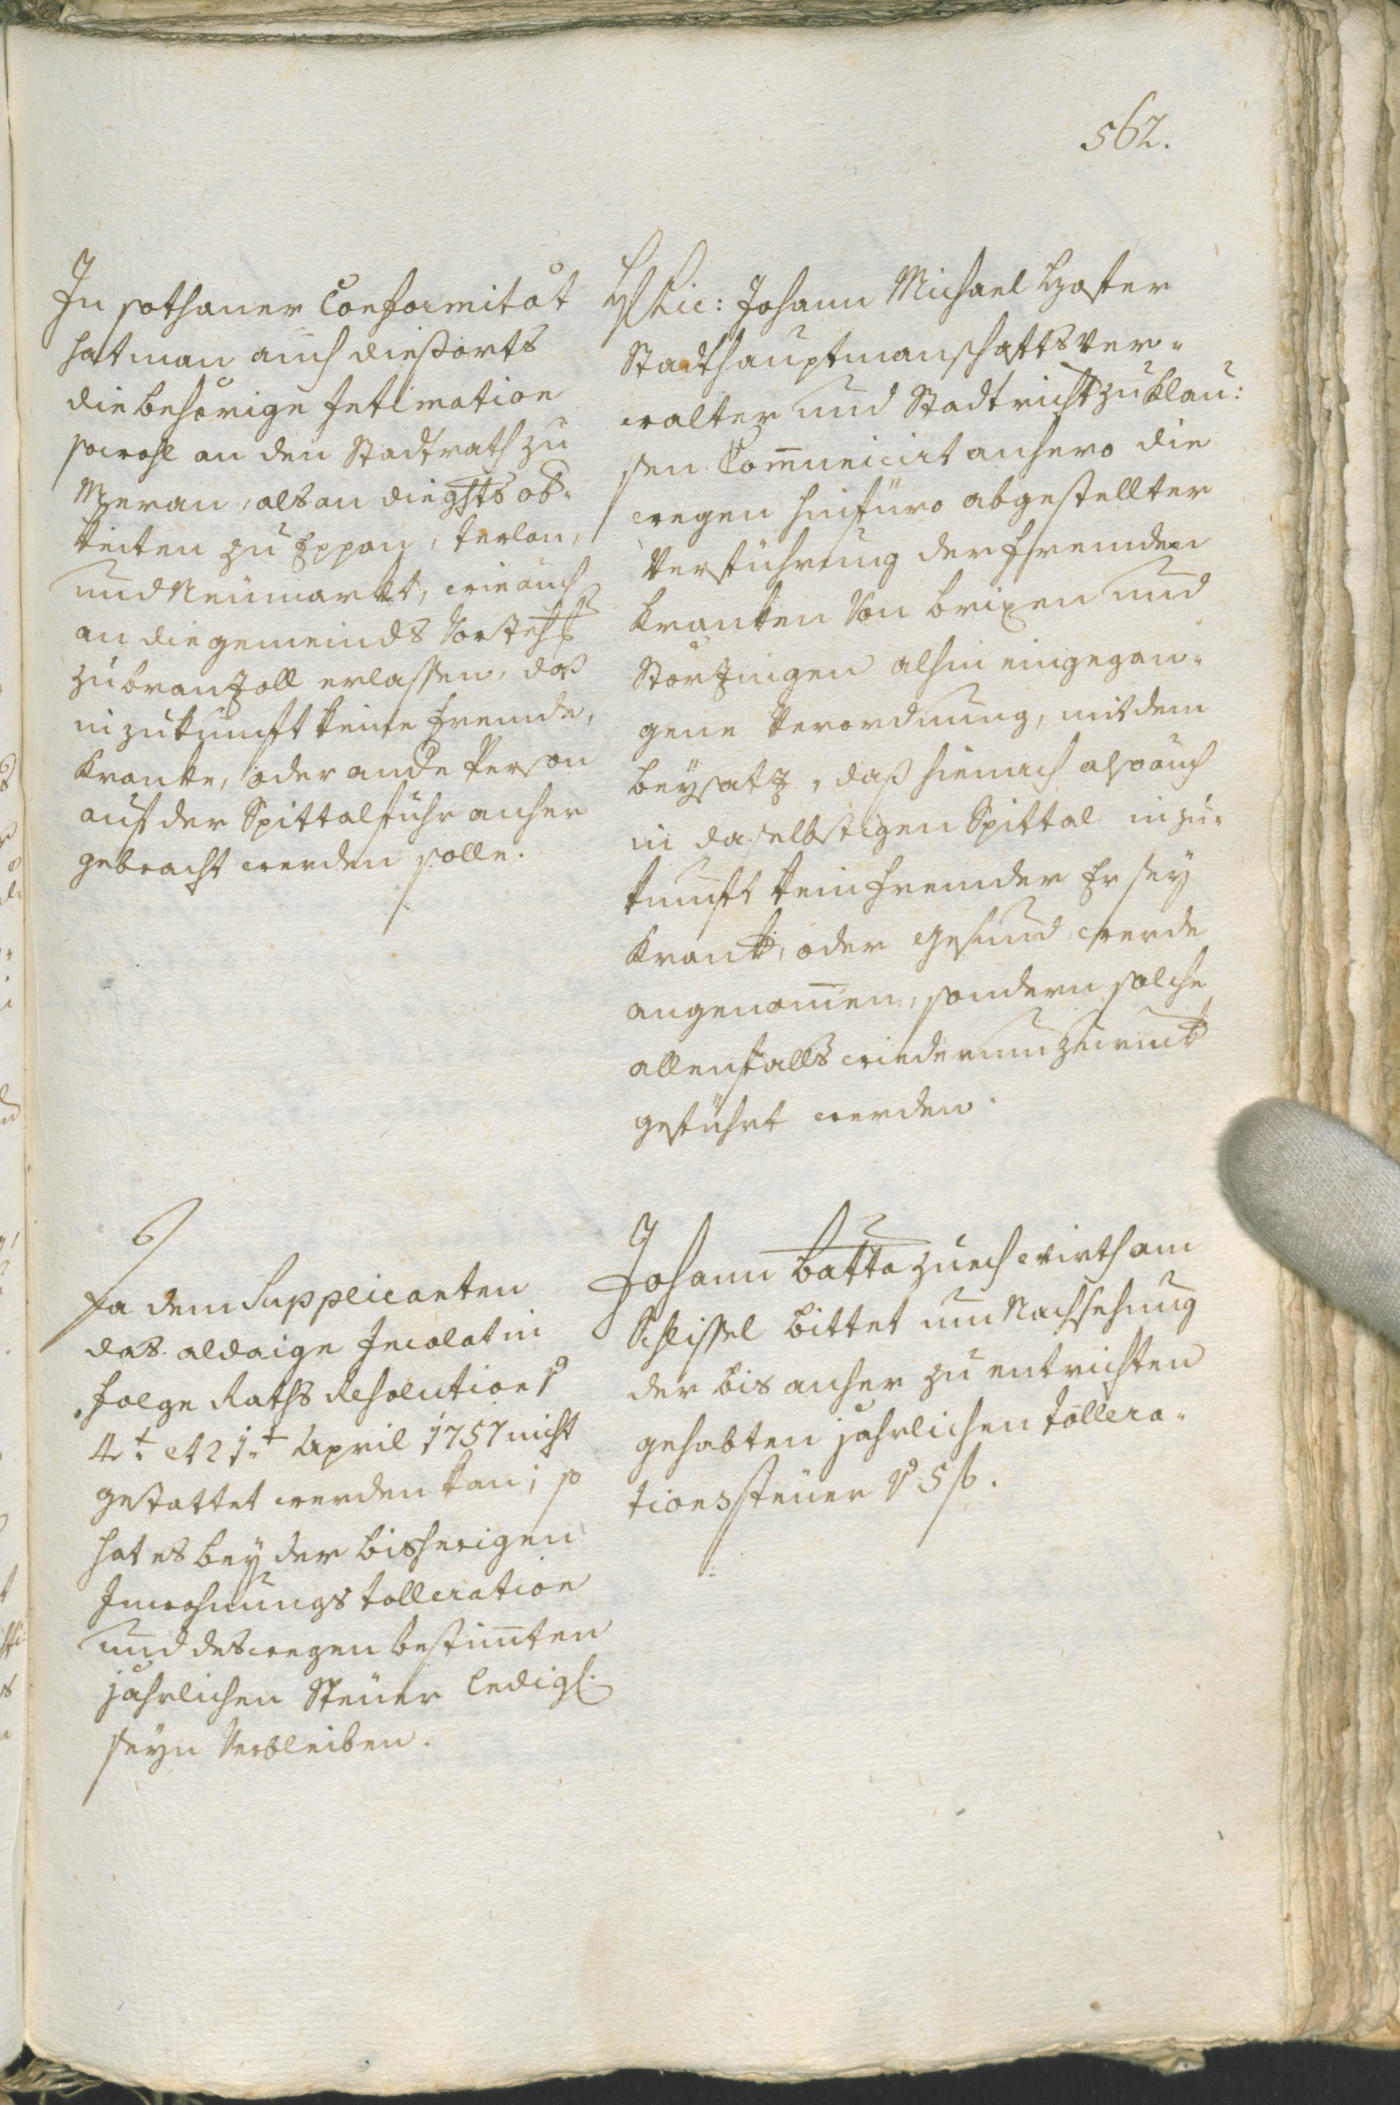 562.
In sothaner Conformität
hat man auch diesorts
die behörige Intimation
sowohl an den Stadtrath zu
Meran, als an die ghts ob-
keiten zu Eppan, Terlan,
und Neumarkt, wie auch
an die gemeinds Vorsteh
zu branzoll erlassen, daß
in zukunft keine fremde,
Kranke, oder ande Person
auf der Spittalfuhr anher
gebracht werden solle.
H Lic: Johann Michael
Stadthauptmanschafts Ver-
walter und Stadtricht zu Klau:
sen Com̅unicirt anhero die
wegen hinfüro abgestellter
Verführung der frembden
Kranken Von brixen und
Störzingen alhin eingegan-
gene Verordnung, mit dem
beysatz, daß hienach also auch
in daselbstigen Spittal in zu-
kunft kein fremder Er sey
Krank, oder gesund werde
angenom̅en, sondern solche
allenfalls wiederum zuruck
geführt werden.
Ja dem Supplicanten
das aldaige Incolat in
folge Raths Resolution
4t et 21.t April 1757 nicht
gestattet werden kan; so
hat es bey der bisherigen
Inwohnungs tolleration
und deswegen bestim̅ten
jährlichen Steuer ledigl:
seyn Verbleiben.
Johann Batta Zuech wirth am
Schlissel bittet um Nachsehung
der bis anher zu entrichten
gehabten jährlichen tollera-
tions steuer 5 f.